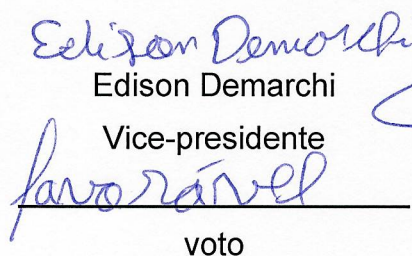 Edison Demarchi
Edison Demarchi
Vice-presidente
favorável
voto